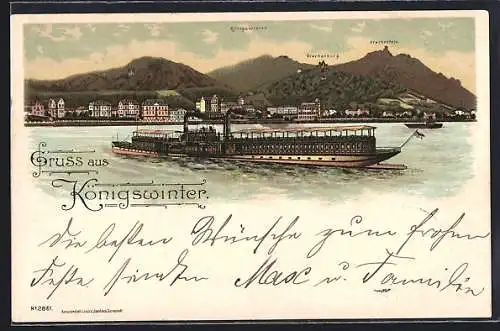 Drachenburg
Drachenfels
Gruss aus
Königswinter.
Die besten Wünsche zum frohen
Feste senden Max u. Familie
No. 2861.